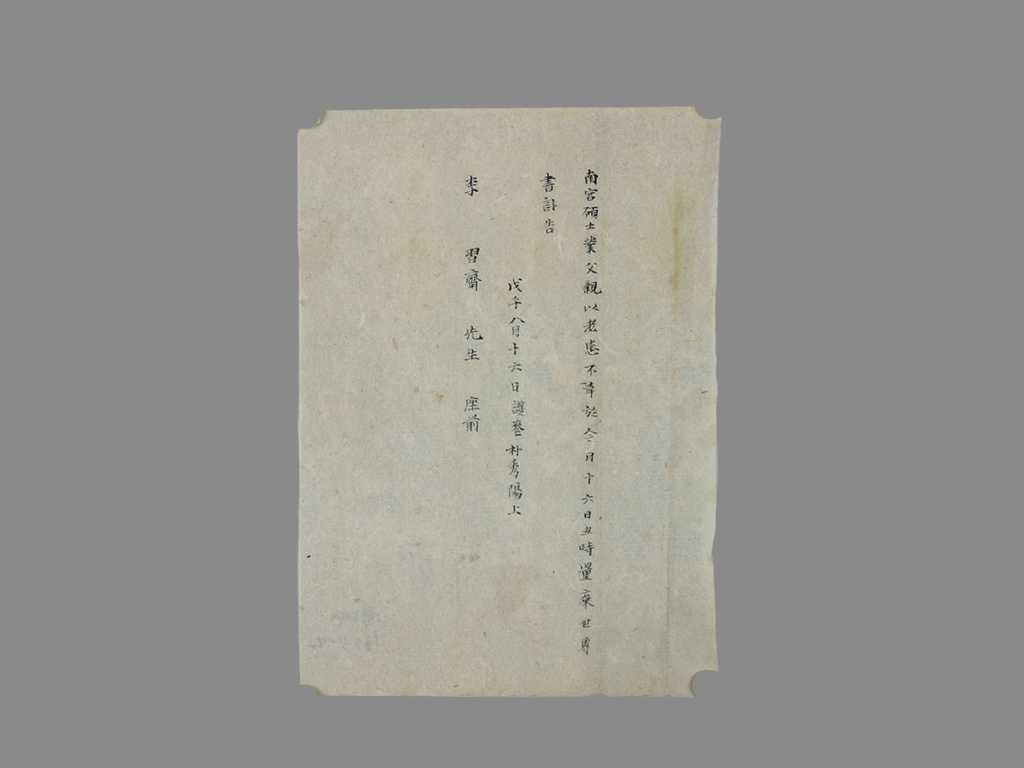 南宮碩士業父親以老患不幸於今月十六日丑時量棄世專
書訃告
戊午八月十六日護喪朴秀陽上
李 習齋 先生 座前